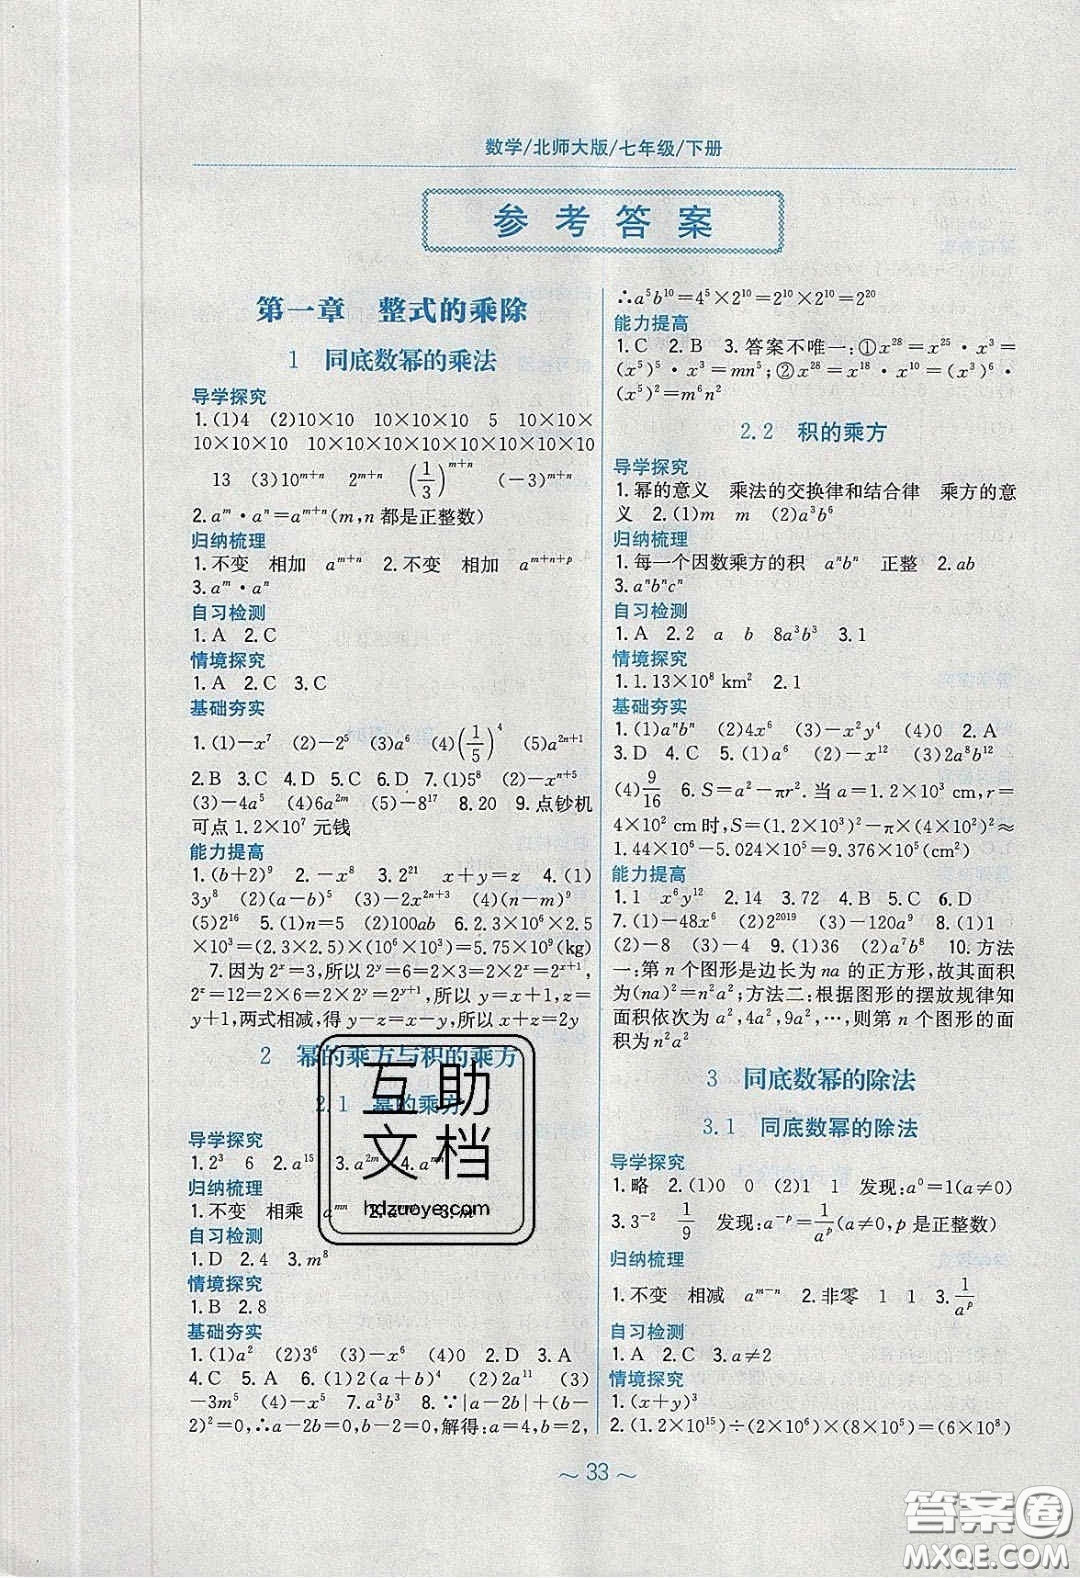 数学/北师大版/七年级/下册
参考答案
第一章 整式的乘除
1 同底数幂的乘法
导学探究
1.(1)4 (2)10×10 10×10×10 5 10×10×
10×10×10 10×10×10×10×10×10×10×10
13 (3)10^{m+n} 2^{m+n} (1/3)^{m+n} (-3)^{m+n}
2.a^m·a^n=a^{m+n}(m,n都是正整数)
归纳梳理
1.不变 相加 a^{m+n} 2.不变 相加 a^{m+n+p}
3.a^m·a^n
自习检测
1.A 2.C
情境探究
1.A 2.C 3.C
基础夯实
1.(1)-x^7 (2)-2^5 (3)a^6 (4)(1/5)^4 (5)a^{2n+1}
2.B 3.C 4.D 5.C 6.D 7.(1)5^8 (2)-x^{n+5}
(3)-4a^5 (4)6a^{2m} (5)-8^{17} 8.20 9.点钞机
可点1.2×10^7元钱
能力提高
1.(b+2)^9 2.-x^8 3.2^{21} x+y=z 4.(1)
3y^8 (2)(a-b)^6 (3)-2x^{2n+3} (4)(n-m)^6
(5)2^{16} 5.(1)n=5 (2)100ab 6.2.3×10^6×2.5
×10^3=(2.3×2.5)×(10^6×10^3)=5.75×10^9(kg)
7.因为2^x=3,所以2^y=6=2×3=2×2^x=2^{x+1},
2^z=12=2×6=2×2^y=2^{y+1},所以y=x+1,z=
y+1,两式相减,得y-z=x-y,所以x+z=2y
2 幂的乘方与积的乘方
2.1 幂的乘方
导学探究
1.2^3 6 2.a^{15} 3.a^{2m} 4.a^{mn}
归纳梳理
1.不变 相乘 a^{mn} 2.a^{mnp} 3.m
自习检测
1.D 2.4 3.m^8
情境探究
1.B 2.8
基础夯实
1.(1)a^2 (2)3^6 (3)-x^6 (4)0 2.D 3.A
4.C 5.A 6.(1)2(a+b)^4 (2)2a^{11} (3)
-3m^5 (4)-x^5 7.a^3b^3 8.∵|a-2b|+(b-
2)^2=0,∴a-2b=0,b-2=0,解得:a=4,b=2,
∴a^5b^{10}=4^5×2^{10}=2^{10}×2^{10}=2^{20}
能力提高
1.C 2.B 3.答案不唯一:①x^{28}=x^{25}·x^3=
(x^5)^5·x^3=mn^5;②x^{28}=x^{18}·x^{10}=(x^3)^6·
(x^5)^2=m^6n^2
2.2 积的乘方
导学探究
1.幂的意义 乘法的交换律和结合律 乘方的意
义 2.(1)m m (2)a^3b^6
归纳梳理
1.每一个因数乘方的积 a^nb^n 正整 2.ab
3.a^nb^nc^n
自习检测
1.A 2.2 a b 8a^3b^3 3.1
情境探究
1.1.13×10^8 km^2 2.1
基础夯实
1.(1)a^nb^n (2)4x^6 (3)-x^2y^4 (4)0 2.A
3.D 4.C 5.(1)a^6 (2)-x^{12} (3)2a^8b^{12}
(4)9/16 6.S=a^2-πr^2.当a=1.2×10^3 cm,r=
4×10^2 cm时,S=(1.2×10^3)^2-π×(4×10^2)^2≈
1.44×10^6-5.024×10^5=9.376×10^5(cm^2)
能力提高
1.1 x^6y^{12} 2.14 3.72 4.B 5.C 6.D
7.(1)-48x^6 (2)2^{2019} (3)-120a^9 8.(1)1
(2)-8 (3)-4 9.(1)36 (2)a^7b^8 10.方法
一:第n个图形是边长为na的正方形,故其面积
为(na)^2=n^2a^2;方法二:根据图形的摆放规律知
面积依次为a^2,4a^2,9a^2,…,则第n个图形的面
积为n^2a^2
3 同底数幂的除法
3.1 同底数幂的除法
导学探究
1.略 2.(1)0 0 (2)1 1 发现:a^0=1(a≠0)
3.3^{-2} 1/9 发现:a^{-p}=1/a^p(a≠0,p是正整数)
归纳梳理
1.不变 相减 a^{m-n} 2.非零 1 1 3.1/a^p
自习检测
1.A 2.C 3.a≠2
情境探究
1.(x+y)^3
2.(1.2×10^{15})÷(2×10^6)×(8×10^5)=(6×10^8)
～33～
互助
文档
hdzuoye.com
答案圈
MXQE.COM